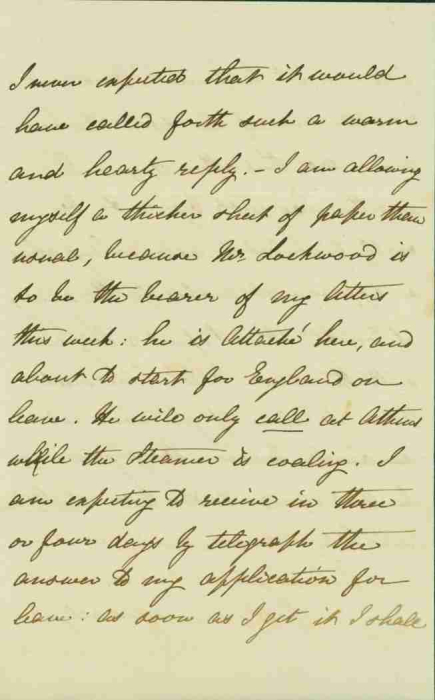 I never expected that it would
have called forth such a warm
and hearty reply. - I am allowing
myself a thicker sheet of paper than
usual, because Mr. Lockwood is
to be the bearer of my letters
this week: he is Attaché here, and
about to start for England on
leave. He will only call at Athens
while the Steamer is coaling. I
am expecting to receive in three
or four days by telegraph the
answer to my application for
leave: as soon as I get it I shall